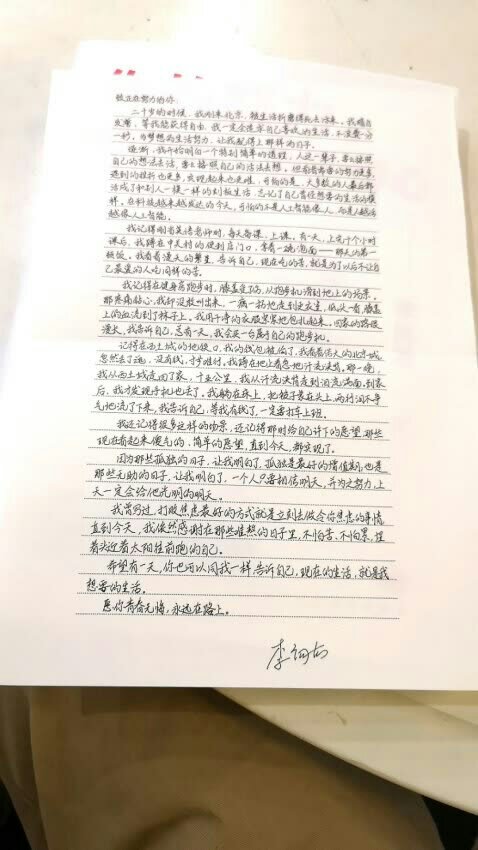 致正在努力的你：
二十多岁的时候，我刚来北京，被生活折磨得死去活来。我暗自
发誓，等我能获得自由，我一定会追求自己喜欢的生活，不浪费一分
一秒，为梦想的生活努力，让我配得上那样的日子。
逐渐，我开始明白一个特别简单的道理，人这一辈子，要么按照
自己的想法去活，要么按照自己的活法去想。但前者需要的努力更多，
遇到的挫折也更多，实现起来也更难，可怕的是，大多数的人最后都
活成了和别人一模一样的刻板生活，忘记了自己曾经想要的生活的模
样。在科技越来越发达的今天，可怕的不是人工智能像人，而是人越活
越像人工智能。
我记得刚当英语老师时，每天备课，上课，有一天，上完十个小时
课后，我蹲在中关村的便利店门口，拿着一碗泡面——那天的第一
顿饭。我看着漫天的繁星，告诉自己，现在吃的苦，就是为了以后不让自
己最爱的人吃同样的苦。
我记得在健身房跑步时，膝盖发软，从跑步机滑到地上的场景。
那疼痛钻心，我却没敢叫出来，一瘸一拐地走到更衣室，低头一看，膝盖
上的血流到了袜子上。我用干净的衣服紧紧地包扎起来。回家的路很
漫长，我告诉自己，总有一天，我会买一台属于自己的跑步机。
记得在西土城的地铁口，我的钱包被偷了，我看着偌大的北京城
忽然去了远，没有钱，寸步难行，我蹲在地上着急地汗流浃背，那一晚，
我从西土城走回了家，十五公里，我从汗流浃背走到泪流满面，到家
后，我才发现手机也丢了。我躺在床上，把被子蒙在头上，两行泪不争
气地流了下来，我告诉自己，等我有钱了，一定要打车上班。
我还记得很多这样的场景，还记得那时给自己许下的愿望，那些
现在看起来傻气的、简单的愿望，直到今天，都实现了。
因为那些孤独的日子，让我明白了，孤独是最好的增值期，也是
那些无助的日子，让我明白了，一个人只要相信明天，并为之努力，上
天一定会给他光明的明天。
我曾写过，打败焦虑最好的方式就是立刻去做令你焦虑的事情
直到今天，我依然感谢在那些难熬的日子里，不怕苦、不怕累，埋
着头迎着太阳往前跑的自己。
希望有一天，你也可以同我一样，告诉自己，现在的生活，就是我
想要的生活。
愿你青春无悔，永远在路上。
李尚龙